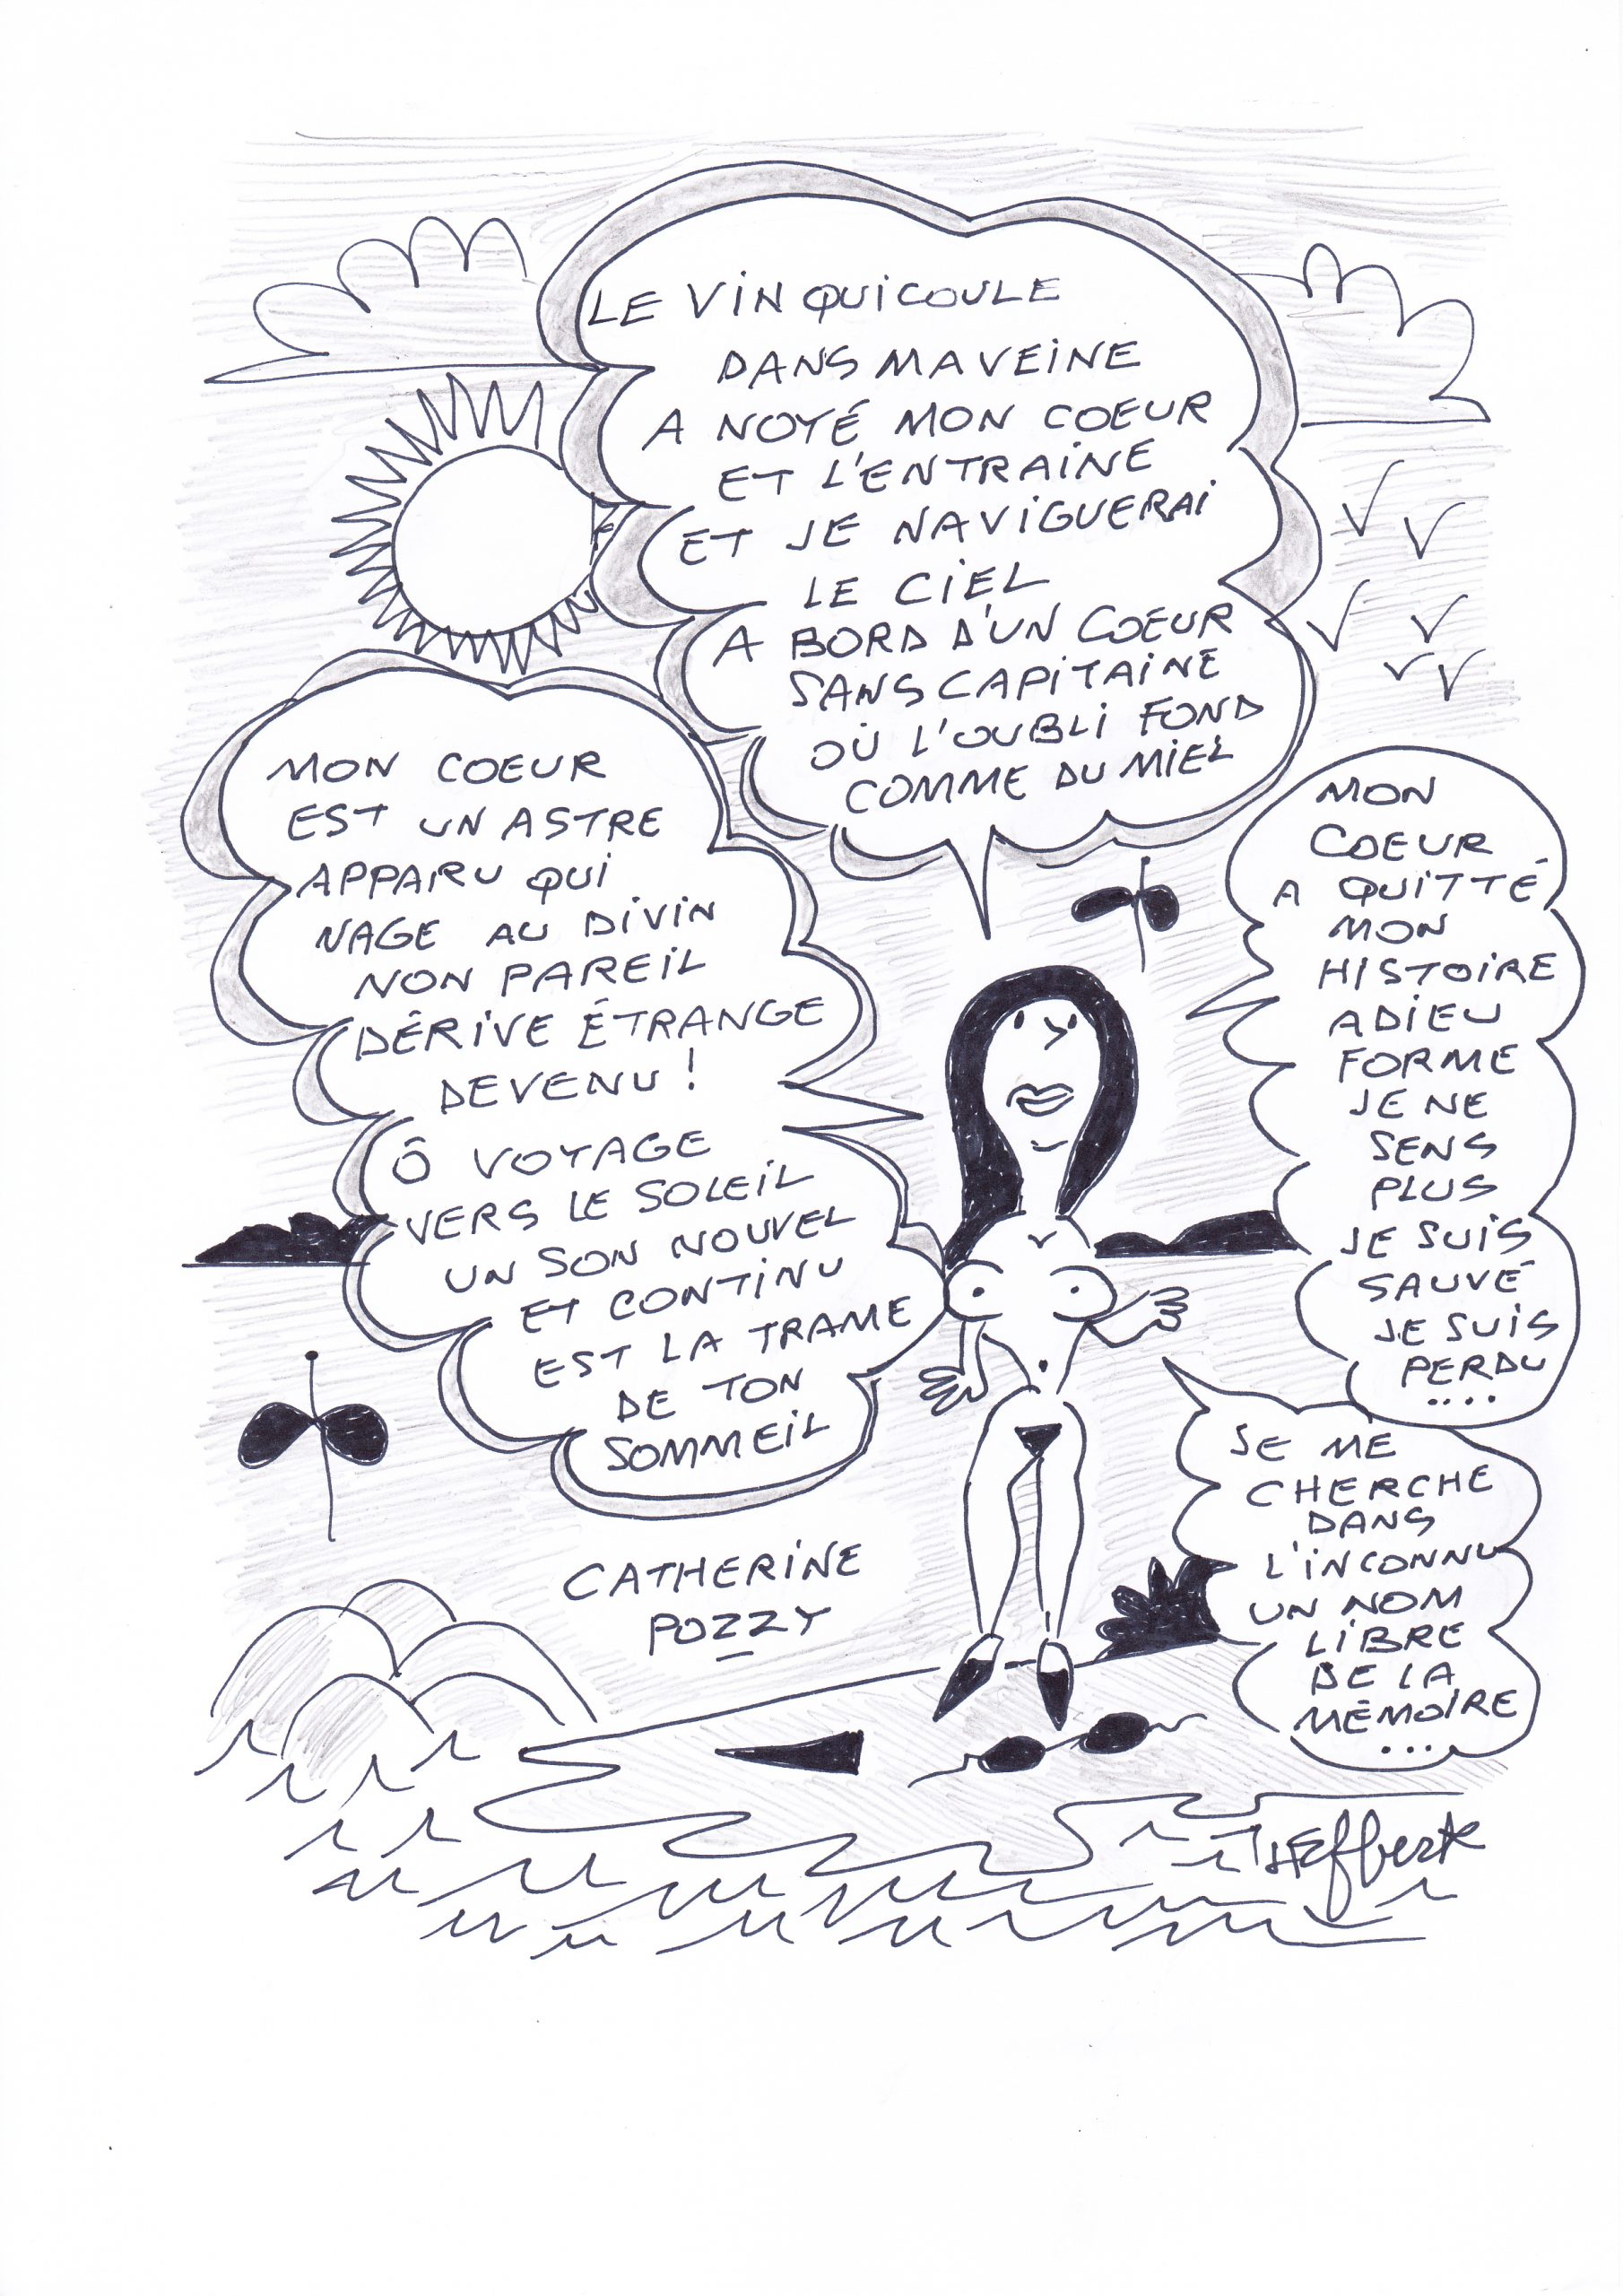 LE VIN QUI COULE
DANS MA VEINE
A NOYÉ MON COEUR
ET L'ENTRAINE
ET JE NAVIGUERAI
LE CIEL
A BORD D'UN COEUR
SANS CAPITAINE
OÙ L'OUBLI FOND
COMME DU MIEL
MON COEUR
EST UN ASTRE
APPARU QUI
NAGE AU DIVIN
NON PAREIL
DÉRIVE ÉTRANGE
DEVENU !
Ô VOYAGE
VERS LE SOLEIL
UN SON NOUVEL
ET CONTINU
EST LA TRAME
DE TON
SOMMEIL
MON
COEUR
A QUITTÉ
MON
HISTOIRE
ADIEU
FORME
JE NE
SENS
PLUS
JE SUIS
SAUVÉ
JE SUIS
PERDU
....
JE ME
CHERCHE
DANS
L'INCONNU
UN NOM
LIBRE
DE LA
MÉMOIRE
...
CATHERINE
POZZY